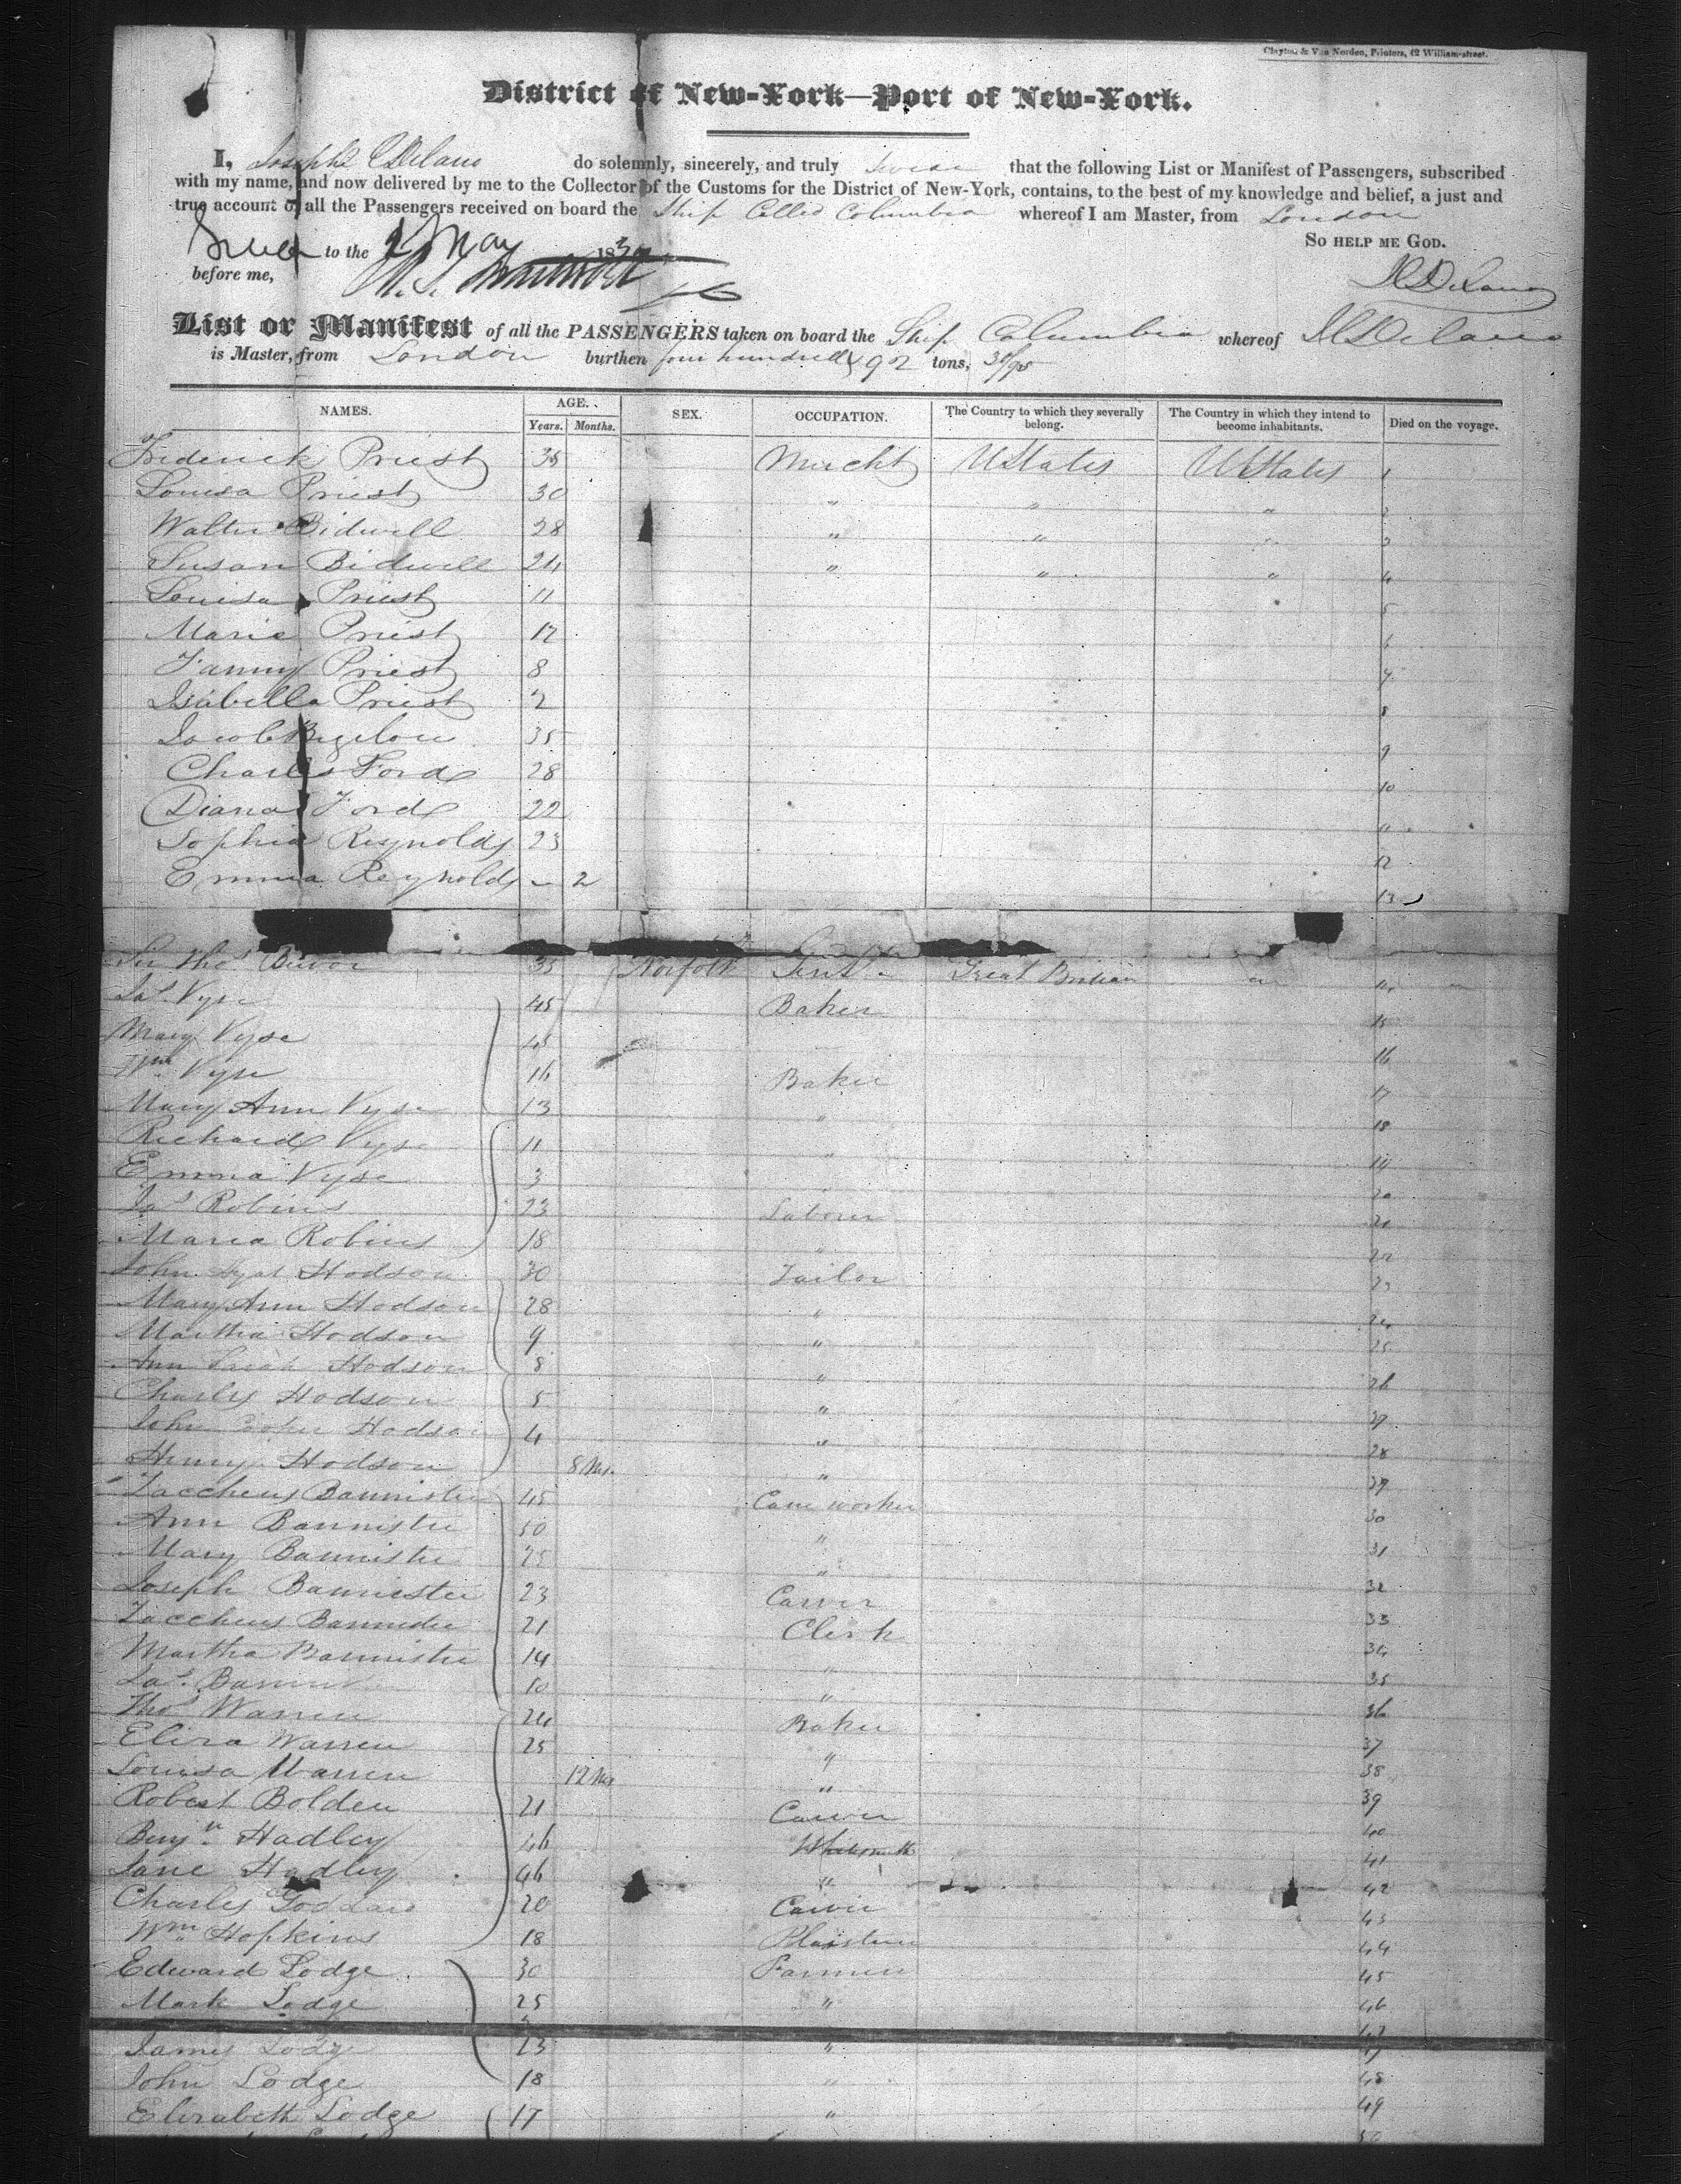 Clayton & Van Norden, Printers, 42 William-street.
District of New-York—Port of New-York.
I, Joseph C Delano do solemnly, sincerely, and truly swear that the following List or Manifest of Passengers, subscribed
with my name, and now delivered by me to the Collector of the Customs for the District of New-York, contains, to the best of my knowledge and belief, a just and
true account of all the Passengers received on board the Ship Called Columbia whereof I am Master, from London
So HELP ME GOD.
to the 2 May 183
before me,
J C Delano
List or Manifest of all the PASSENGERS taken on board the Ship Columbia whereof J C Delano
is Master, from London burthen four hundred & 92 tons, 30/95
NAMES. AGE. SEX. OCCUPATION. The Country to which they severally belong. The Country in which they intend to become inhabitants. Died on the voyage.
Years. Months.
Frederick Priest 35 Mercht U States U States 1
Louisa Priest 30 " " " 2
Walter Bidwell 28 " " " 3
Susan Bidwell 24 " " " 4
Louisa Priest 11 5
Maria Priest 12 6
Fanny Priest 8 7
Isabella Priest 2 8
Jacob Bigelow 35 9
Charles Ford 28 10
Diana Ford 22 11
Sophia Reynolds 23 12
Emma Reynolds - 2 13
Sir Thos 35 Norfolk Great Britian 14
Jas Vyse 45 Baker 15
Mary Vyse 45 16
Wm Vyse 16 Baker 17
Mary Ann Vyse 13 " 18
Richard Vyse 11 " 19
Emma Vyse 3 20
Jas Robins 23 Laborer 21
Maria Robins 18 " 22
John Hodson 30 Tailor 23
Mary Ann Hodson 28 " 24
Martha Hodson 9 " 25
Ann Sarah Hodson 8 " 26
Charles Hodson 5 " 27
John Hodson 4 " 28
Henry Hodson 8 Ms. " 29
Zaccheus Bannister 45 Cane worker 30
Ann Bannister 50 " 31
Mary Bannister 25 " 32
Joseph Bannister 23 Carver 33
Zaccheus Bannister 21 Clerk 34
Martha Bannister 14 " 35
Jas. 10 " 36
Thos Warren 24 Baker 37
Eliza Warren 25 " 38
Louisa Warren 12 Ms " 39
Robert Bolden 21 Carver 40
Benjn. Hadley 46 Whitesmith 41
Jane Hadley 46 " 42
Charles Goddard 20 Carver 43
Wm Hopkins 18 Plaisterer 44
Edward Lodge 30 Farmer 45
Mark Lodge 25 " 46
47
James Lodge 13 "
John Lodge 18 " 48
Elizabeth Lodge 17 " 49
50